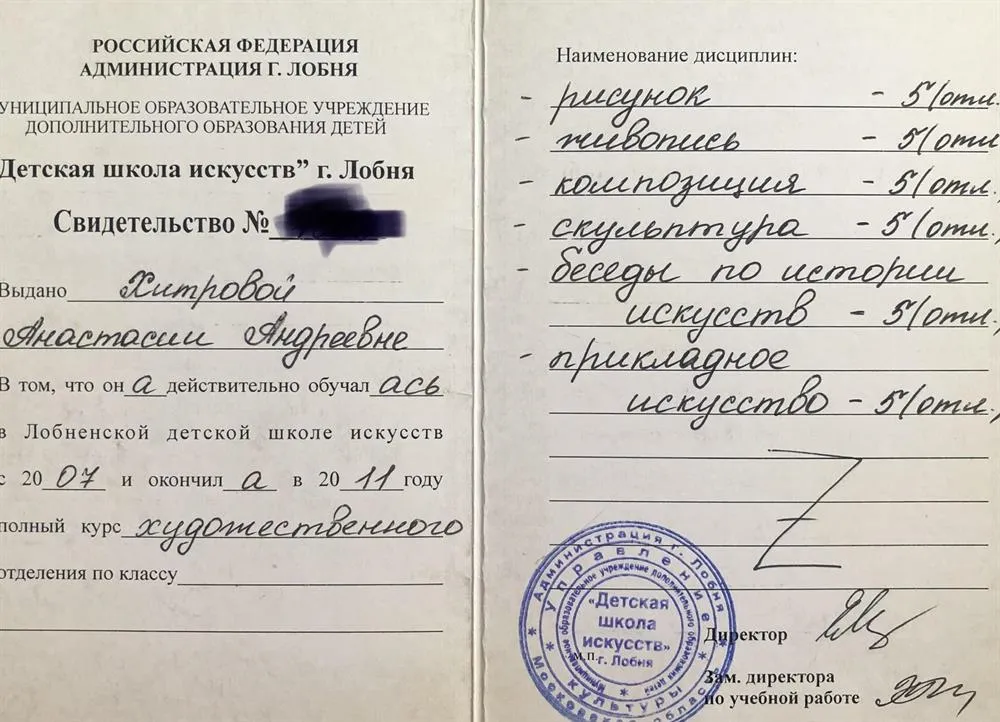 РОССИЙСКАЯ ФЕДЕРАЦИЯ
АДМИНИСТРАЦИЯ Г. ЛОБНЯ
УНИЦИПАЛЬНОЕ ОБРАЗОВАТЕЛЬНОЕ УЧРЕЖДЕНИЕ
ДОПОЛНИТЕЛЬНОГО ОБРАЗОВАНИЯ ДЕТЕЙ
Детская школа искусств” г. Лобня
Свидетельство №
Выдано Хитровой
Анастасии Андреевне
В том, что он а действительно обучал ась
в Лобненской детской школе искусств
с 20 07 и окончил а в 20 11 году
полный курс художественного
отделения по классу
Наименование дисциплин:
- рисунок - 5 (отл.
- живопись - 5 (отл
- композиция - 5 (отл.
- скульптура - 5 (отл.
- беседы по истории
искусств - 5 (отл.
- прикладное
искусство - 5 (отл.)
Администрация г. Лобня
Управление культуры
Московская область
Муниципальное образовательное учреждение дополнительного образования детей
«Детская
школа
искусств»
м.п. г. Лобня
Директор
Зам. директора
по учебной работе